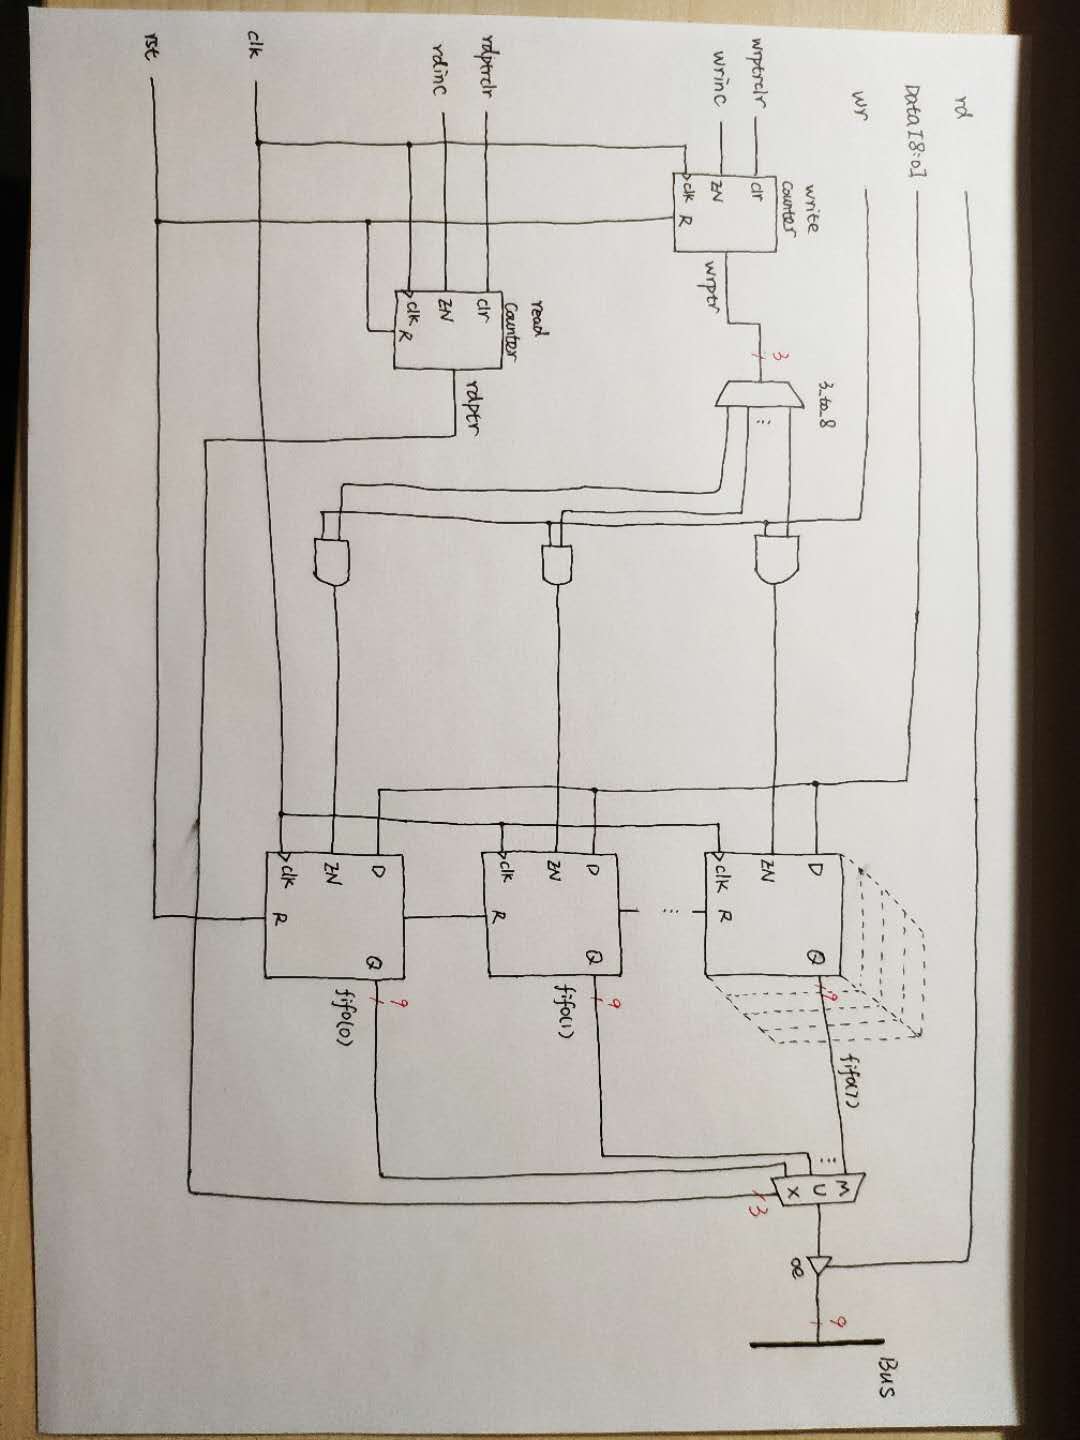 rd
Data[8:0]
wr
wrptrclr
wrinc
rdptrclr
rdinc
clk
rst
write
counter
clr
ZN
clk
R
wrptr
3
3_to_8
read
counter
clr
ZN
clk
R
rdptr
D
ZN
clk
R
Q
9
fifo(7)
D
ZN
clk
R
Q
9
fifo(1)
D
ZN
clk
R
Q
9
fifo(0)
M
U
X
3
oe
9
Bus